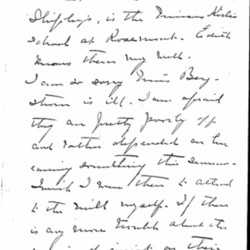 Shipley's, is the Misses Kirk's
School at Rosemont. Edith
knows them very well.
I am so sorry Miss Bay-
storm is ill. I am afraid
they are pretty poorly off
and rather depended on her
earning something this summer.
I wish I were there to attend
to the mill myself. If there
is any more trouble about the